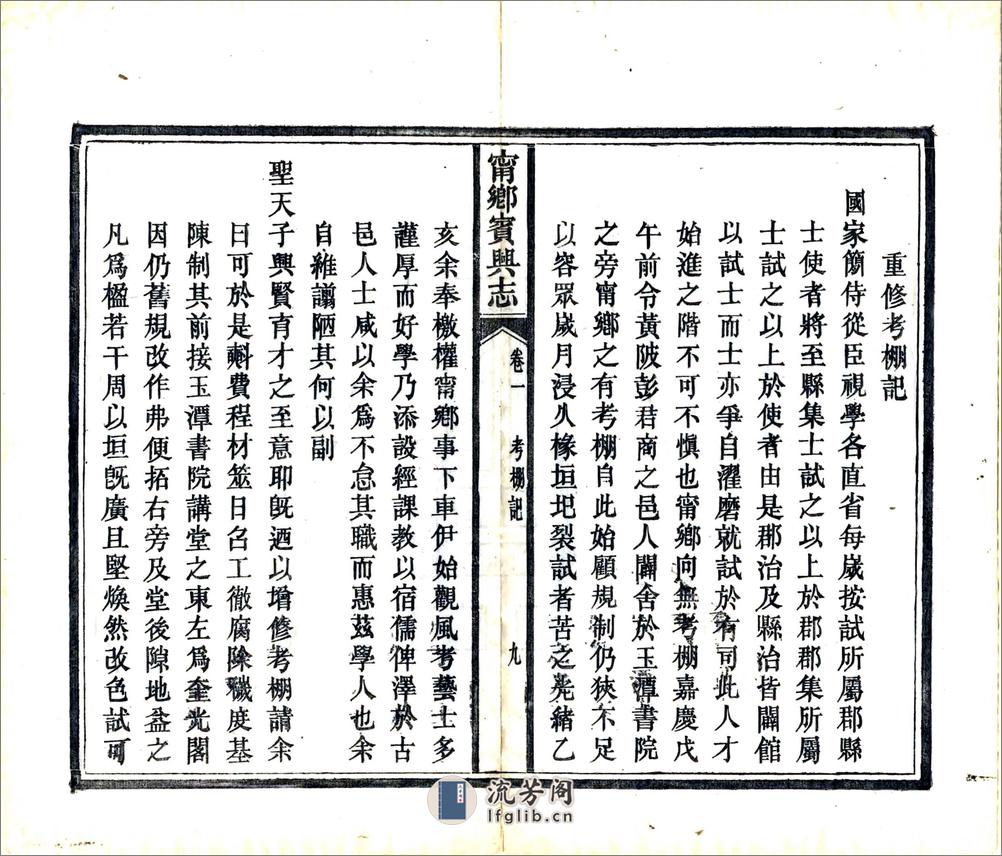 重修考棚記
國家簡侍從臣視學各直省每嵗按試所屬郡縣
士使者將至縣集士試之以上於郡郡集所屬
士試之以上於使者由是郡治及縣治皆闢館
以試士而士亦爭自濯磨就試於有司此人才
始進之階不可不愼也甯鄉向無考棚嘉慶戊
午前令黃陂彭君商之邑人闢舍於玉潭書院
之旁甯鄉之有考棚自此始顧規制仍狹不足
以容眾嵗月浸久椽垣圯裂試者苦之光緒乙
甯鄉賓興志
卷一
考棚記
九
亥余奉檄權甯鄉事下車伊始觀風考藝士多
謹厚而好學乃添設經課教以宿儒俾澤於古
邑人士咸以余爲不怠其職而惠茲學人也余
自維譾陋其何以副
聖天子興賢育才之至意耶旣迺以增修考棚請余
曰可於是㪺費程材筮日召工徹腐除穢度基
陳制其前接玉潭書院講堂之東左爲奎光閣
因仍舊規改作弗便拓右旁及堂後隙地益之
凡爲楹若干周以垣旣廣且堅煥然改色試可
流芳阁
lfglib.cn